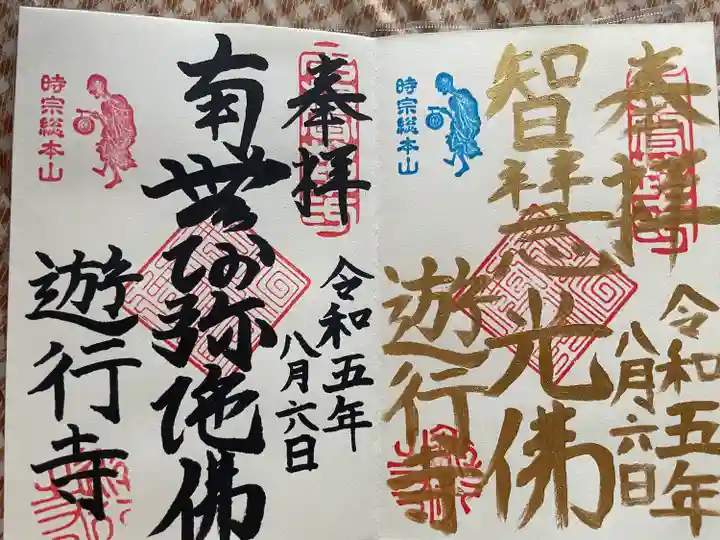 奉拝
令和五年
八月六日
智慧光佛
時宗総本山
遊行寺
奉拝
令和五年
八月六日
南無阿弥陀佛
時宗総本山
遊行寺